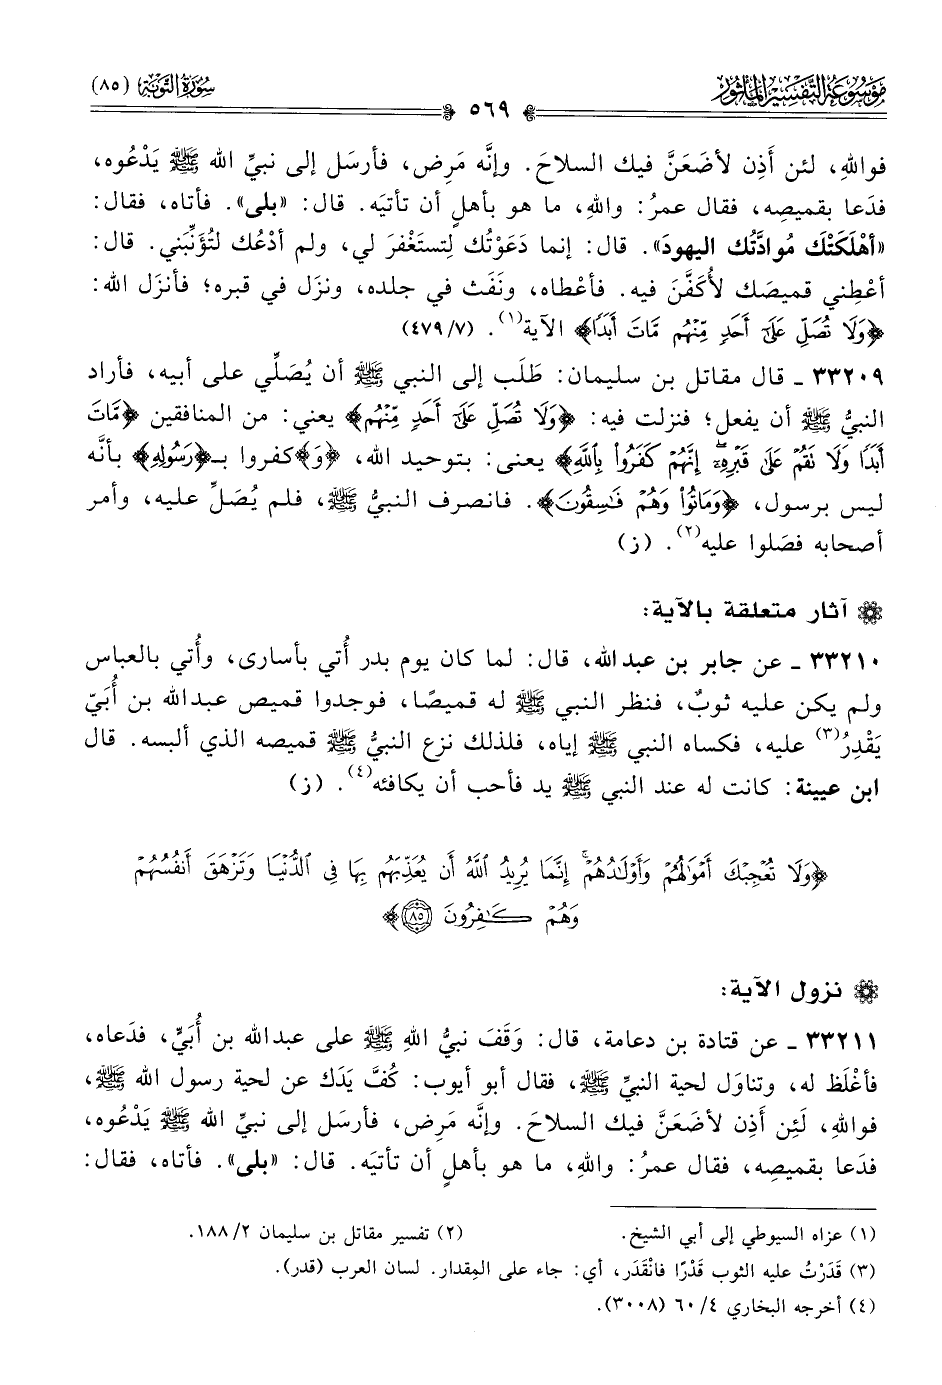 مَوْسُوعَة التَّفْسِيرِ المَأْثُور
سُورَةُ التَّوْبَة (٨٥)
٥٦٩
فواللهِ، لئن أَذِن لأضَعَنَّ فيك السلاحَ. وإنَّه مَرِض، فأرسَل إلى نبيِّ الله ﷺ يَدْعُوه،
فدَعا بقميصِه، فقال عمرُ: واللهِ، ما هو بأهلٍ أن تأتيَه. قال: «بلى». فأتاه، فقال:
«أهْلَكَتْكَ مُوادَّتُك اليهودَ». قال: إنما دَعَوْتُك لِتستَغْفرَ لي، ولم أدْعُك لتُؤَنِّبَني. قال:
أعْطِني قميصَك لأُكَفَّنَ فيه. فأعْطاه، ونَفَث في جلده، ونزَل في قبره؛ فأنزَل الله:
﴿وَلَا تُصَلِّ عَلَىٰٓ أَحَدٍ مِّنْهُم مَّاتَ أَبَدًا﴾ الآية(١). (٤٧٩/٧)
٣٣٢٠٩ ـ قال مقاتل بن سليمان: طَلَب إلى النبي ﷺ أن يُصَلِّي على أبيه، فأراد
النبيُّ ﷺ أن يفعل؛ فنزلت فيه: ﴿وَلَا تُصَلِّ عَلَىٰٓ أَحَدٍ مِّنْهُم﴾ يعني: من المنافقين ﴿مَّاتَ
أَبَدًا وَلَا نَقُمْ عَلَىٰ قَبْرِهِۦٓ إِنَّهُمْ كَفَرُوا۟ بِٱللَّهِ﴾ يعنى: بتوحيد الله، ﴿وَ﴾كفروا بـ﴿رَسُولِهِۦ﴾ بأنَّه
ليس برسول، ﴿وَمَاتُوا۟ وَهُمْ فَـٰسِقُونَ﴾. فانصرف النبيُّ ﷺ، فلم يُصَلِّ عليه، وأمر
أصحابه فصَلوا عليه(٢). (ز)
آثار متعلقة بالآية:
٣٣٢١٠ ـ عن جابر بن عبدالله، قال: لما كان يوم بدر أُتي بأسارى، وأُتي بالعباس
ولم يكن عليه ثوبٌ، فنظر النبي ﷺ له قميصًا، فوجدوا قميص عبدالله بن أُبَيّ
يَقْدِرُ(٣) عليه، فكساه النبي ﷺ إياه، فلذلك نزع النبيُّ ﷺ قميصه الذي ألبسه. قال
ابن عيينة: كانت له عند النبي ﷺ يد فأحب أن يكافئه(٤). (ز)
﴿وَلَا تُعْجِبْكَ أَمْوَٰلُهُمْ وَأَوْلَـٰدُهُمْ ۚ إِنَّمَا يُرِيدُ ٱللَّهُ أَن يُعَذِّبَهُم بِهَا فِى ٱلدُّنْيَا وَتَزْهَقَ أَنفُسُهُمْ
وَهُمْ كَـٰفِرُونَ ٨٥﴾
نزول الآية:
٣٣٢١١ ـ عن قتادة بن دعامة، قال: وَقَفَ نبيُّ اللهِ ﷺ على عبدالله بن أُبَيٍّ، فدَعاه،
فأغْلَظ له، وتناوَل لحية النبيِّ ﷺ، فقال أبو أيوب: كُفَّ يَدَك عن لحية رسول الله ﷺ،
فواللهِ، لَئِن أَذِن لأضَعَنَّ فيك السلاحَ. وإنَّه مَرِض، فأرسَل إلى نبيِّ الله ﷺ يَدْعُوه،
فدَعا بقميصِه، فقال عمرُ: واللهِ، ما هو بأهلٍ أن تأتيَه. قال: «بلى». فأتاه، فقال:
(١) عزاه السيوطي إلى أبي الشيخ. (٢) تفسير مقاتل بن سليمان ١٨٨/٢.
(٣) قَدَرْتُ عليه الثوب قَدْرًا فانْقَدَر، أي: جاء على المِقدار. لسان العرب (قدر).
(٤) أخرجه البخاري ٦٠/٤ (٣٠٠٨).